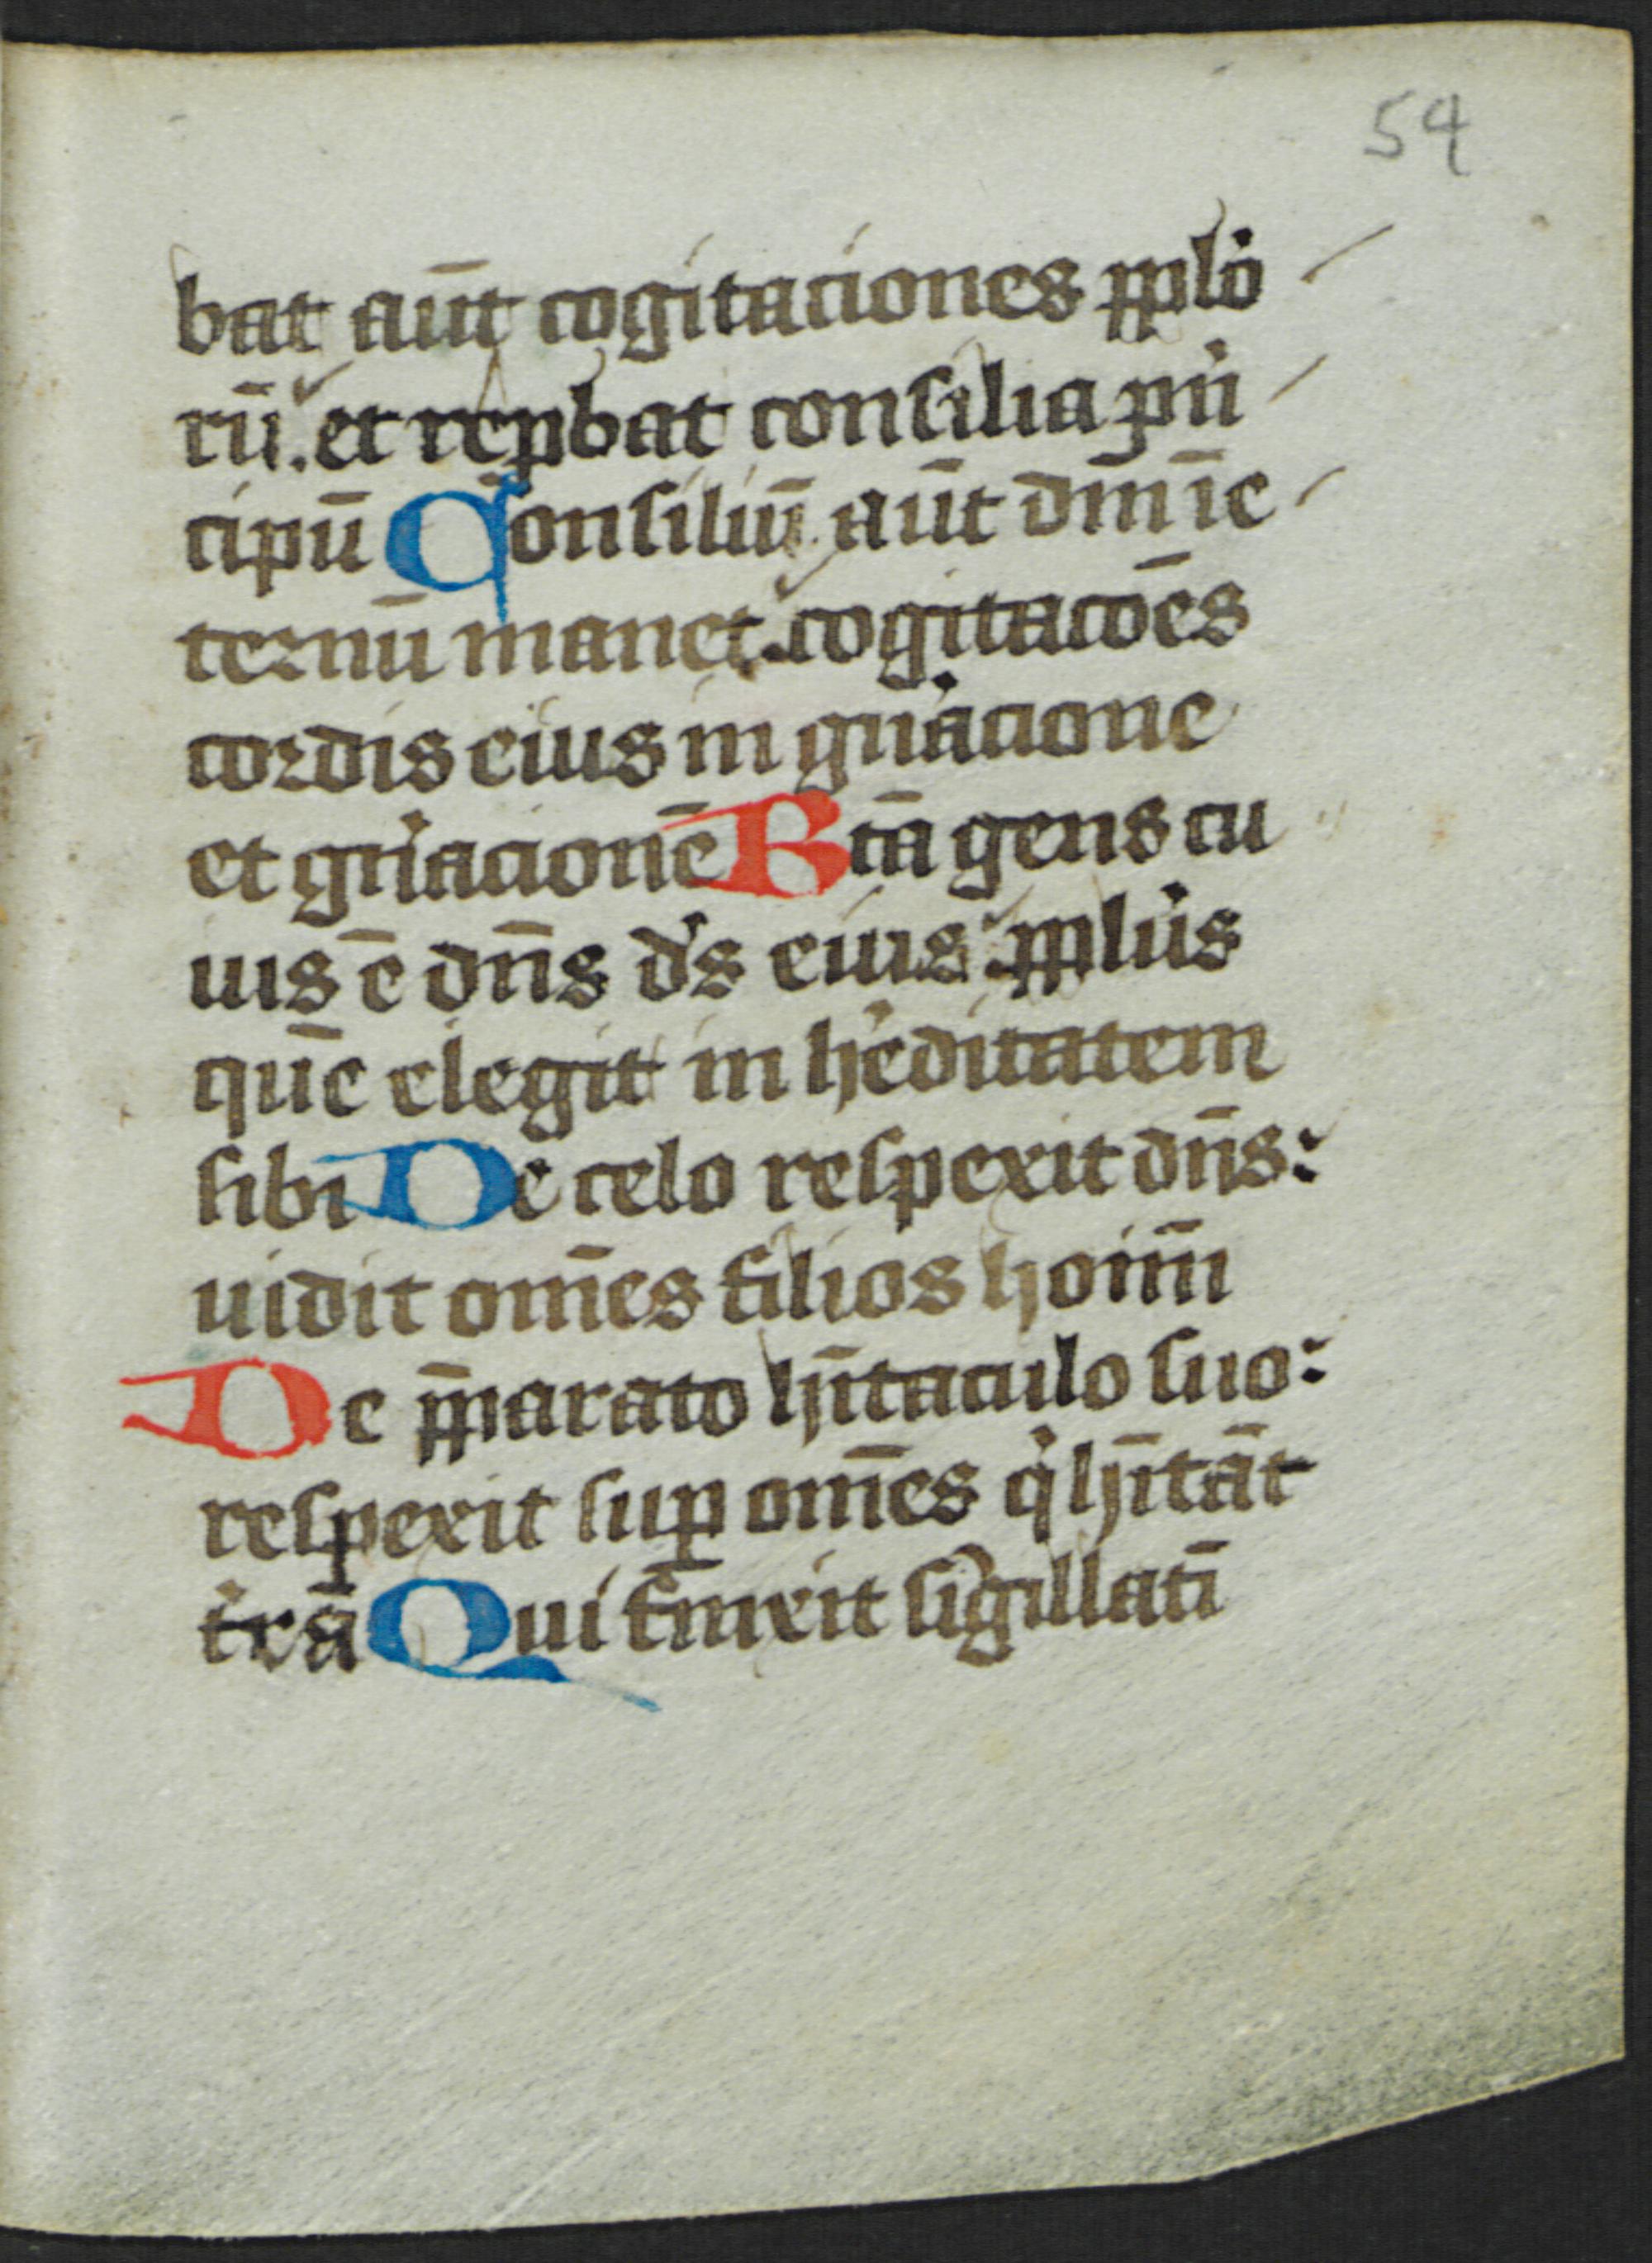 54
bat aūt cogitaciones pplo
rū. et repbat consilia pn
cipū Consiliū aūt dm̄ ī e
ternū manet. cogitacōes
cordis eius in gnacione
et gnacionē Btā gens cu
ius ē dn̄s ds eius pplus
quē elegit in heditatem
sibi De celo respexit dn̄s:
uidit om̄es filios hoim̄
De p̄parato hītaculo suo:
respexit suꝑ om̄es q hītāt
trā Qui finxit sigillatī